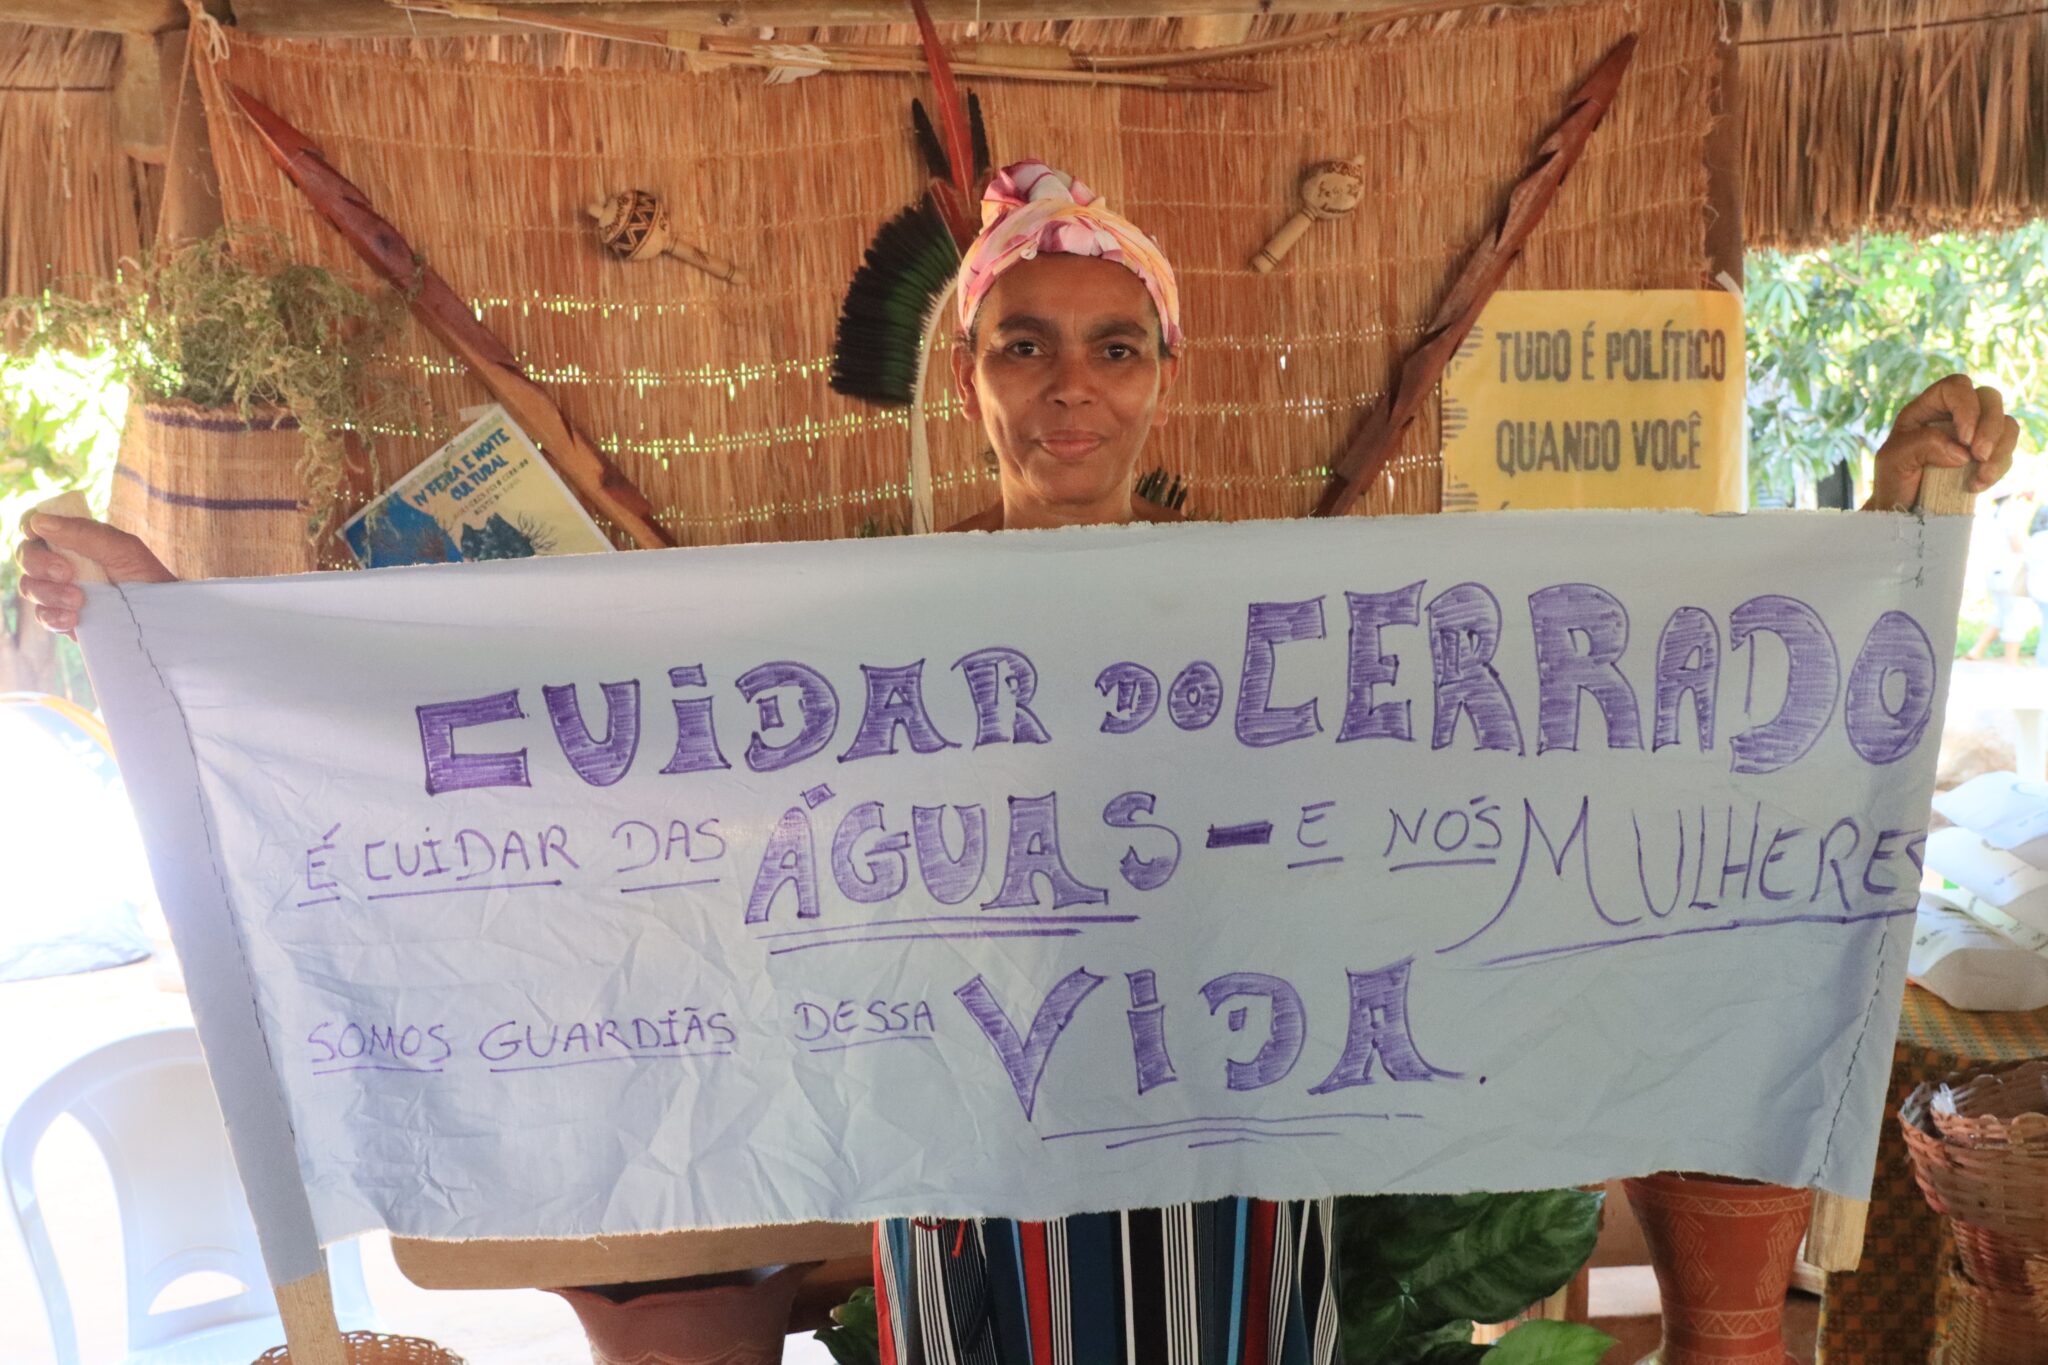 TUDO É POLÍTICO
QUANDO VOCÊ
IV FEIRA E NOITE
CULTURAL
CUIDAR DO CERRADO
É CUIDAR DAS ÁGUAS - E NÓS MULHERES
SOMOS GUARDIÃS DESSA VIDA.